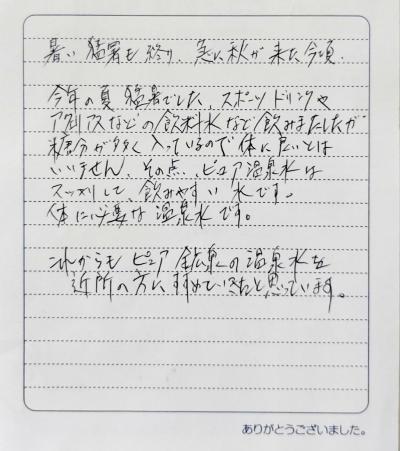 暑い猛暑も終り、急に秋が来た今頃、
今年の夏猛暑でした、スポーツドリンクや
アクエリアスなどの飲料水など飲みましたが
糖分が多く入っているので体に良いとは
いいません、その点、ピュア温泉水は
スッキリして、飲みやすい水です。
体に必要な温泉水です。
これからもピュア鉱泉の温泉水を
近所の方にすすめていきたと思っています。
ありがとうございました。